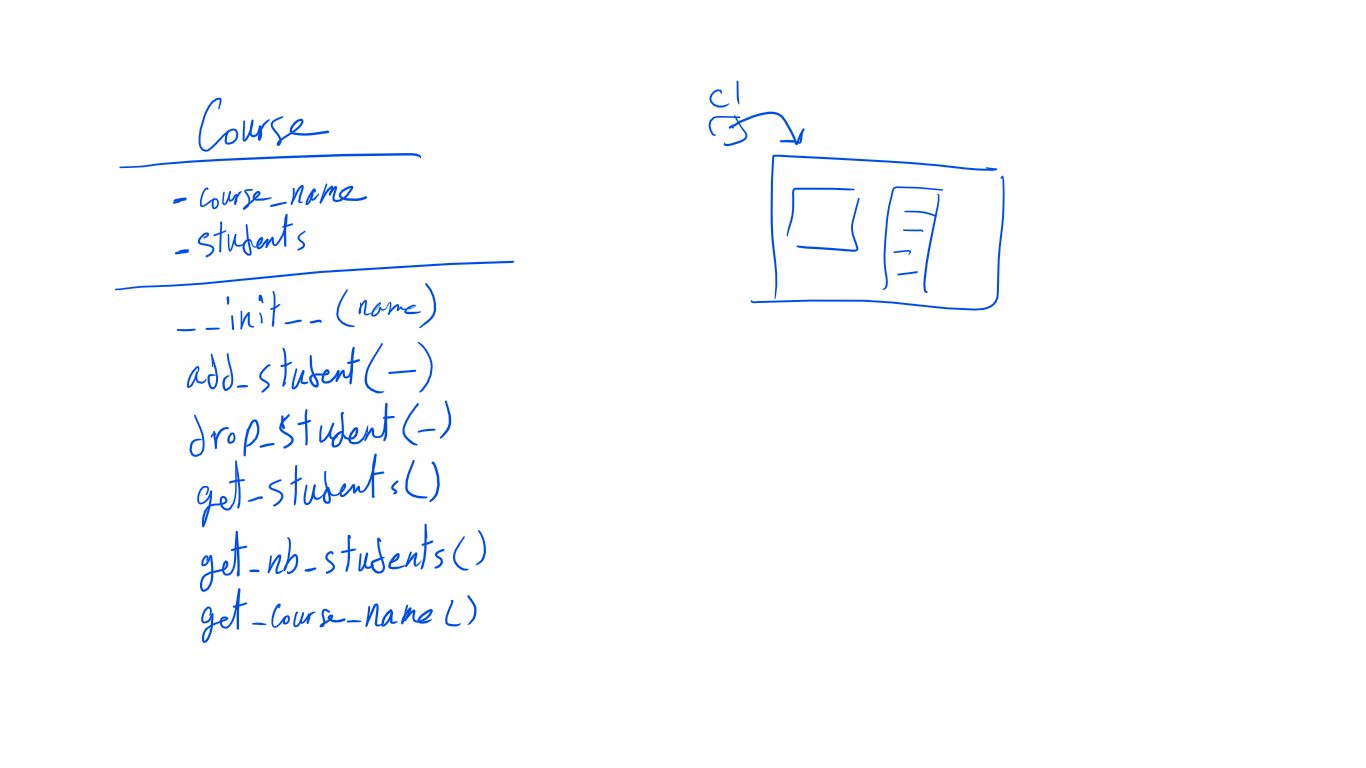 Course
- course_name
- students
__init__(name)
add_student(—)
drop_student(-)
get_students()
get_nb_students()
get_course_name()
c1